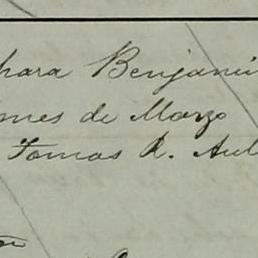 hara Benjami
mes de Marzo
Tomas R. Aul